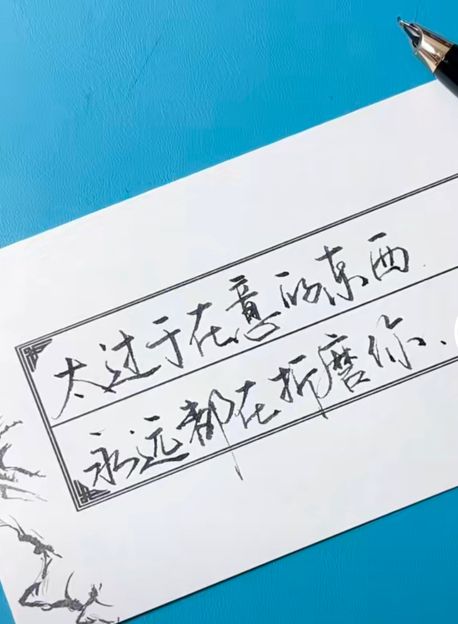 太过于在意的东西.
永远都在折磨你.